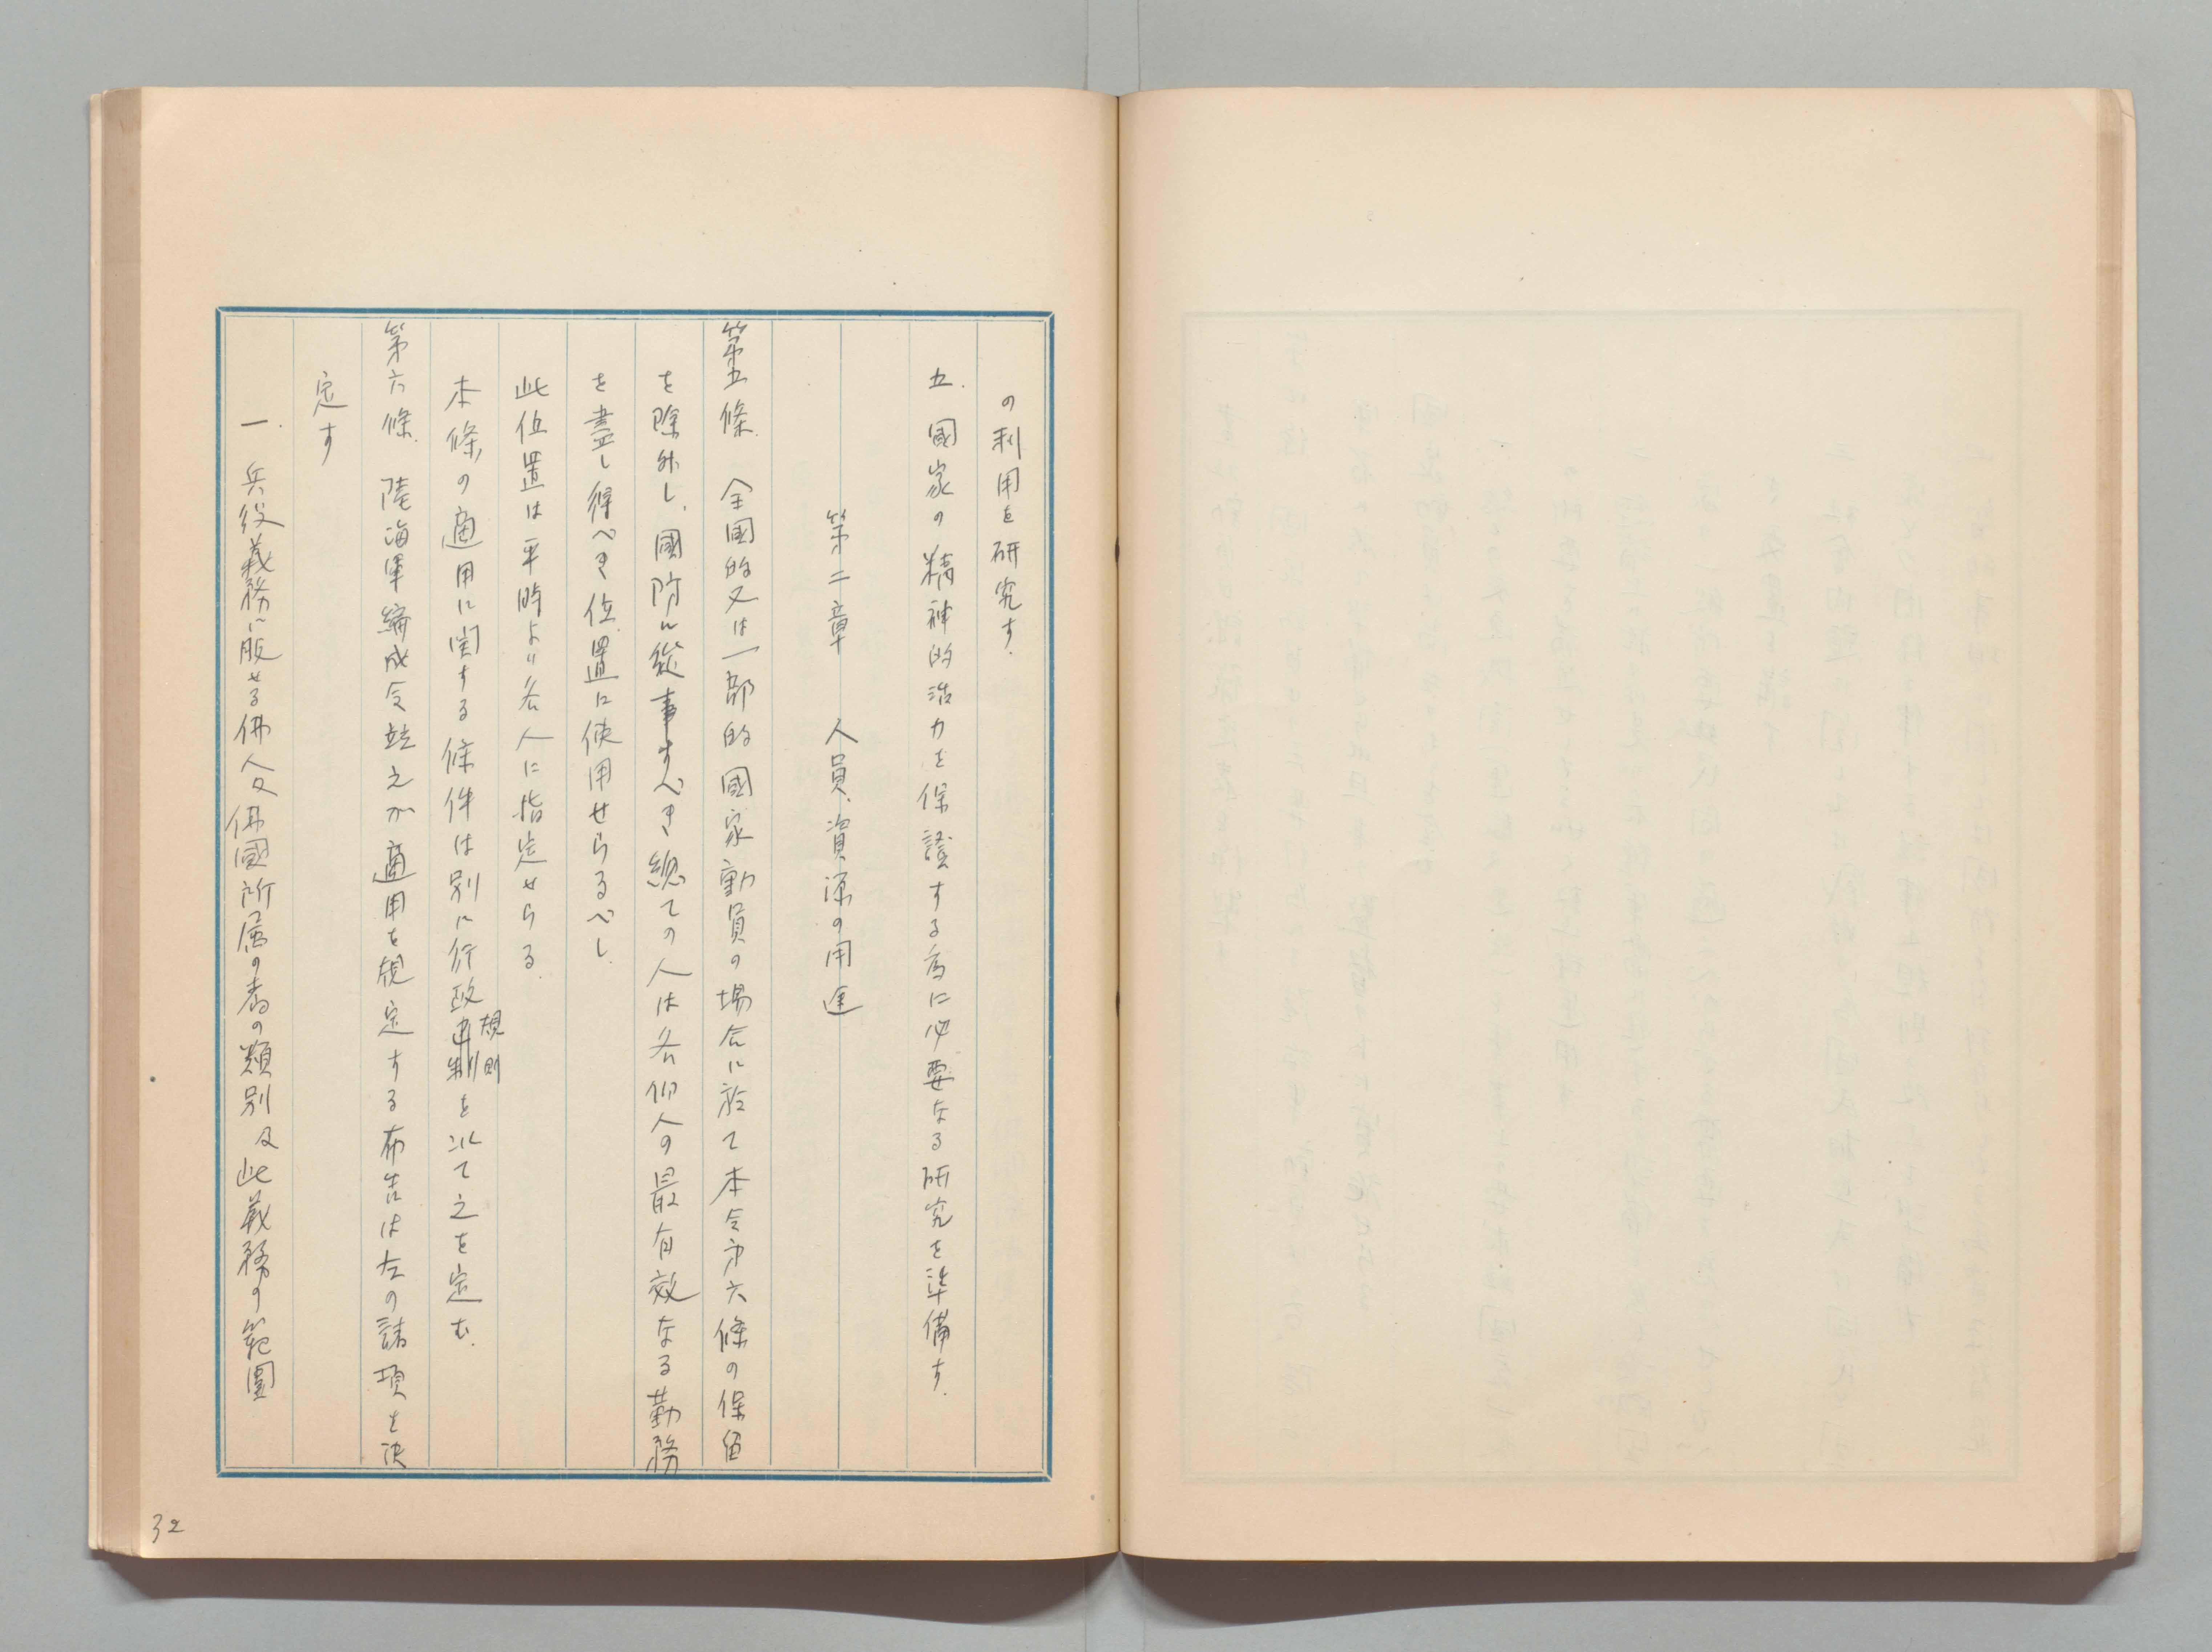 の利用を研究す.
五. 國家の精神的活力を保證する為に必要なる研究を準備す.
第二章 人員資源の用途
第五條. 全國的又は一部的國家動員の場合に於て本令第六條の保留
を除外し國防に従事すべき總ての人は各個人の最有效なる勤務
を盡し得べき位置に使用せらるべし.
此位置は平時より各人に指定せらる.
本條の適用に関する條件は別に行政規則を以て之を定む.
第六條. 陸海軍編成令並之が適用を規定する布告は左の諸項を決
定す
一. 兵役義務に服せる佛人又佛國所属の者の類別及此義務の範圍
32